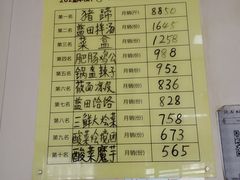 第一名 猪蹄 月销(份) 8850
第二名 蓝田拌汤 月销(份) 1645
第三名 菜盒 月销(份) 1258
第四名 肥肠鸡公 月销(份) 988
第五名 锅盔辣子 月销(份) 952
第六名 莜面凉皮 月销(份) 836
第七名 蓝田饸饹 月销(份) 828
第八名 三鲜人烩菜 月销(份) 758
第九名 月销(份) 673
第十名 酸菜魔芋 月销(份) 565